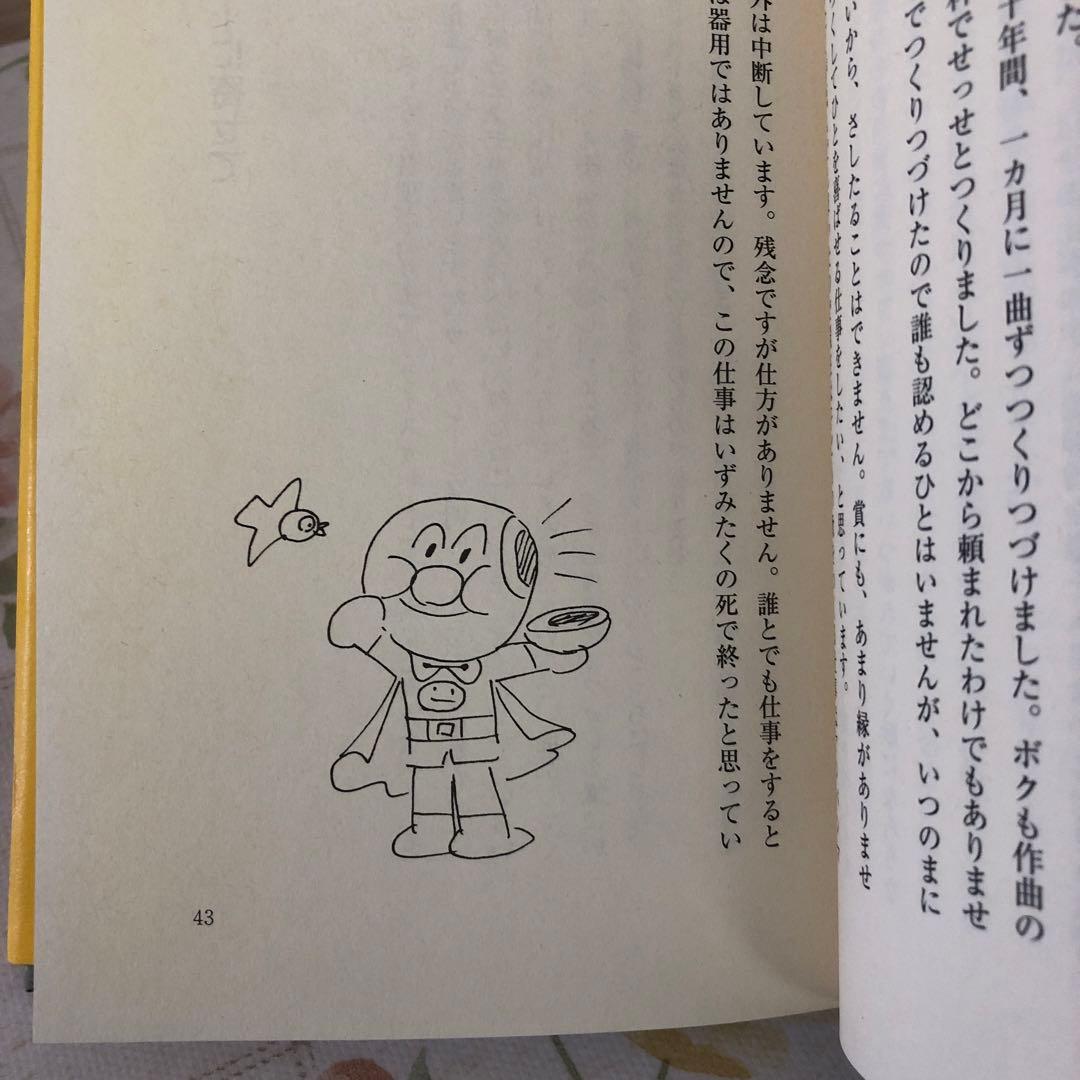 た。
十年間、一カ月に一曲ずつつくりつづけました。ボクも作曲の
でせっせとつくりました。どこから頼まれたわけでもありませ
でつくりつづけたので誰も認めるひとはいませんが、いつのまに
いから、さしたることはできません。賞にも、あまり縁がありませ
くしてひとを喜ばせる仕事をしたい、と思っています。
外は中断しています。残念ですが仕方がありません。誰とでも仕事をすると
は器用ではありませんので、この仕事はいずみたくの死で終ったと思ってい
43